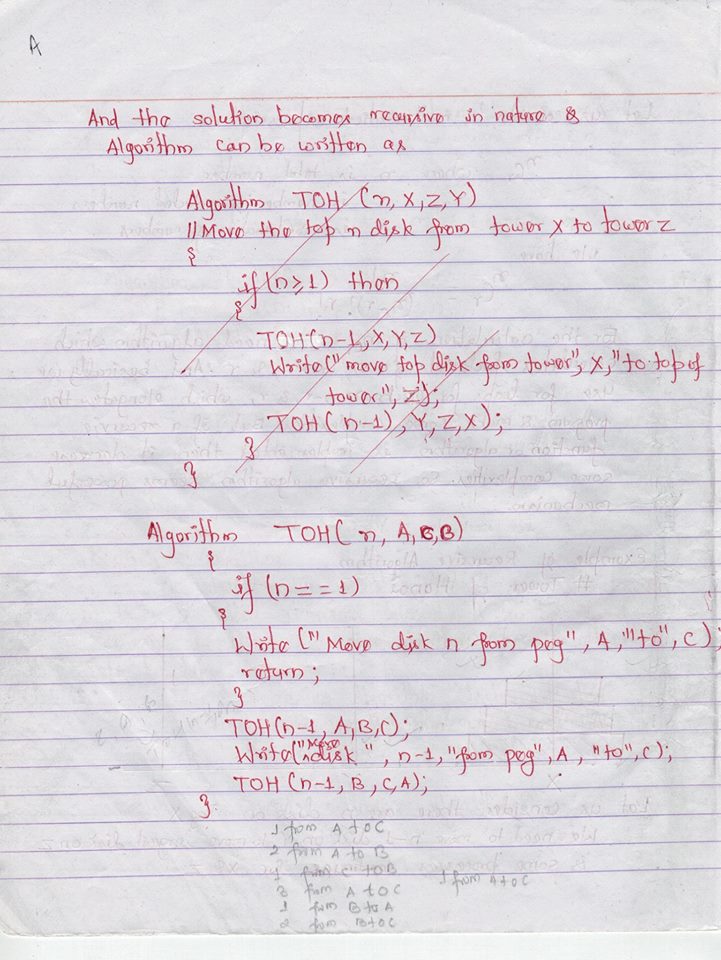 A
And the solution becomes recursive in nature &
Algorithm can be written as
Algorithm TOH (n, X, Z, Y)
// Move the top n disk from tower X to tower Z
{
if (n≥1) then
{
TOH(n-1, X, Y, Z)
Write("move top disk from tower", X, "to top of
tower", Z);
TOH(n-1), Y, Z, X);
}
}
Algorithm TOH( n, A, C, B)
{
if (n == 1)
{
Write ("Move disk n from peg", A, "to", C);
return;
}
TOH(n-1, A, B, C);
Write("Move disk ", n-1, "from peg", A, "to", C);
TOH (n-1, B, C, A);
}
1 from A to C
2 from A to B
1 from C to B
3 from A to C 1 from A to C
1 from B to A
2 from B to C